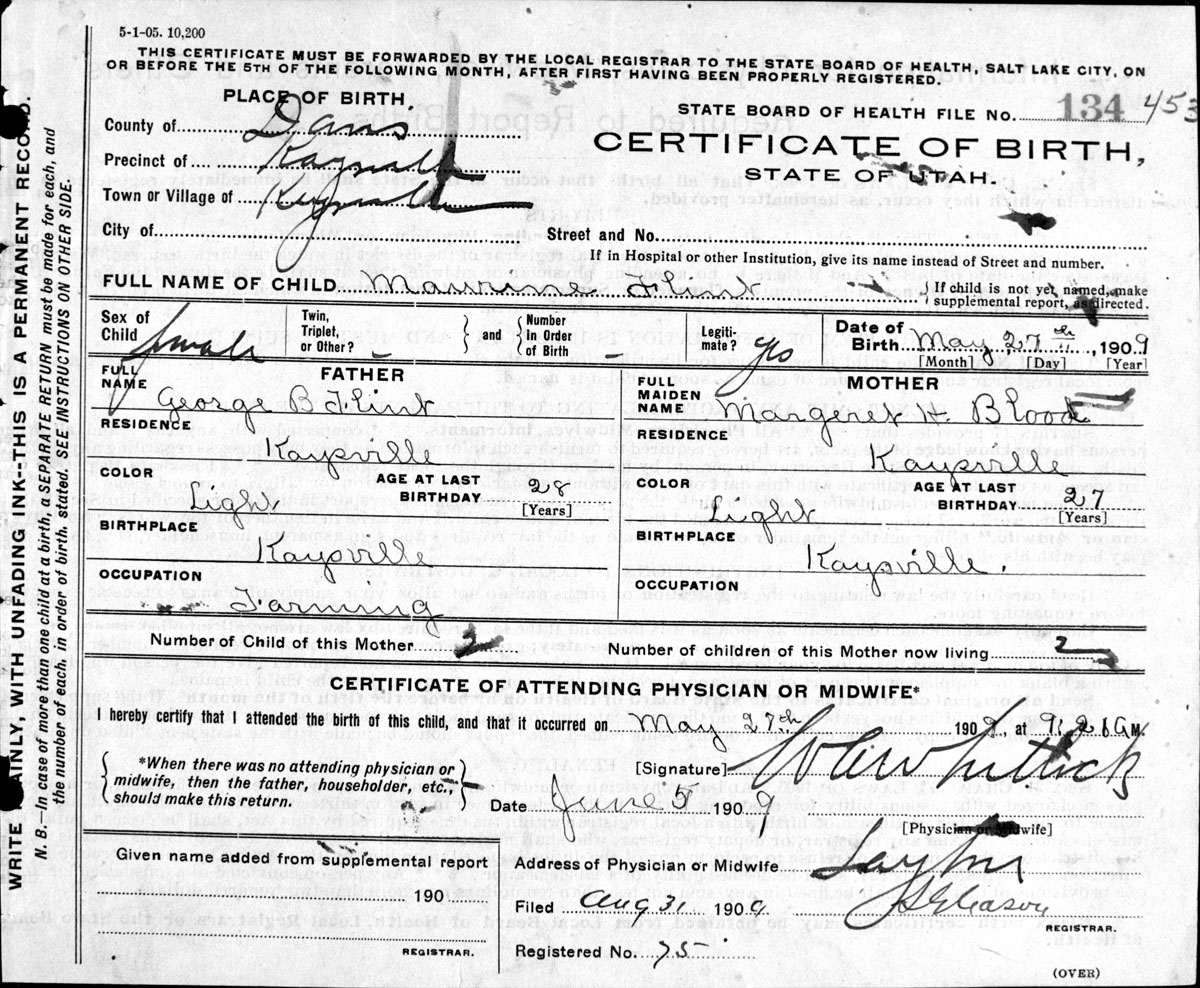 5-1-05. 10,200
THIS CERTIFICATE MUST BE FORWARDED BY THE LOCAL REGISTRAR TO THE STATE BOARD OF HEALTH, SALT LAKE CITY, ON
OR BEFORE THE 5TH OF THE FOLLOWING MONTH, AFTER FIRST HAVING BEEN PROPERLY REGISTERED.
PLACE OF BIRTH,
STATE BOARD OF HEALTH FILE No. 134 453
County of Davis
CERTIFICATE OF BIRTH,
Precinct of Kaysville
STATE OF UTAH.
Town or Village of Kaysville
City of
Street and No.
If in Hospital or other Institution, give its name instead of Street and number.
FULL NAME OF CHILD Maurine Flint { If child is not yet named, make
supplemental report, as directed.
Sex of Child female
Twin, Triplet, or Other? –
} and {
Number In Order of Birth –
Legitimate? yes
Date of Birth May 27th, 1909
[Month] [Day] [Year]
FATHER
FULL NAME George B Flint
RESIDENCE Kaysville
COLOR Light
AGE AT LAST BIRTHDAY 28
[Years]
BIRTHPLACE Kaysville
OCCUPATION Farming
MOTHER
FULL MAIDEN NAME Margeret H. Blood
RESIDENCE Kaysville
COLOR Light
AGE AT LAST BIRTHDAY 27
[Years]
BIRTHPLACE Kaysville.
OCCUPATION
Number of Child of this Mother 2
Number of children of this Mother now living 2
CERTIFICATE OF ATTENDING PHYSICIAN OR MIDWIFE*
I hereby certify that I attended the birth of this child, and that it occurred on May 27th 1909, at M.
{ *When there was no attending physician or
midwife, then the father, householder, etc.,
should make this return. }
[Signature]
Date June 5 1909
[Physician or Midwife]
Given name added from supplemental report
190
REGISTRAR.
Address of Physician or Midwife Layton
Filed Aug 31, 1909. J S Gleason
REGISTRAR.
Registered No. 75
(OVER)
WRITE PLAINLY, WITH UNFADING INK--THIS IS A PERMANENT RECORD.
N. B.—In case of more than one child at a birth, a SEPARATE RETURN must be made for each, and
the number of each, in order of birth, stated. SEE INSTRUCTIONS ON OTHER SIDE.